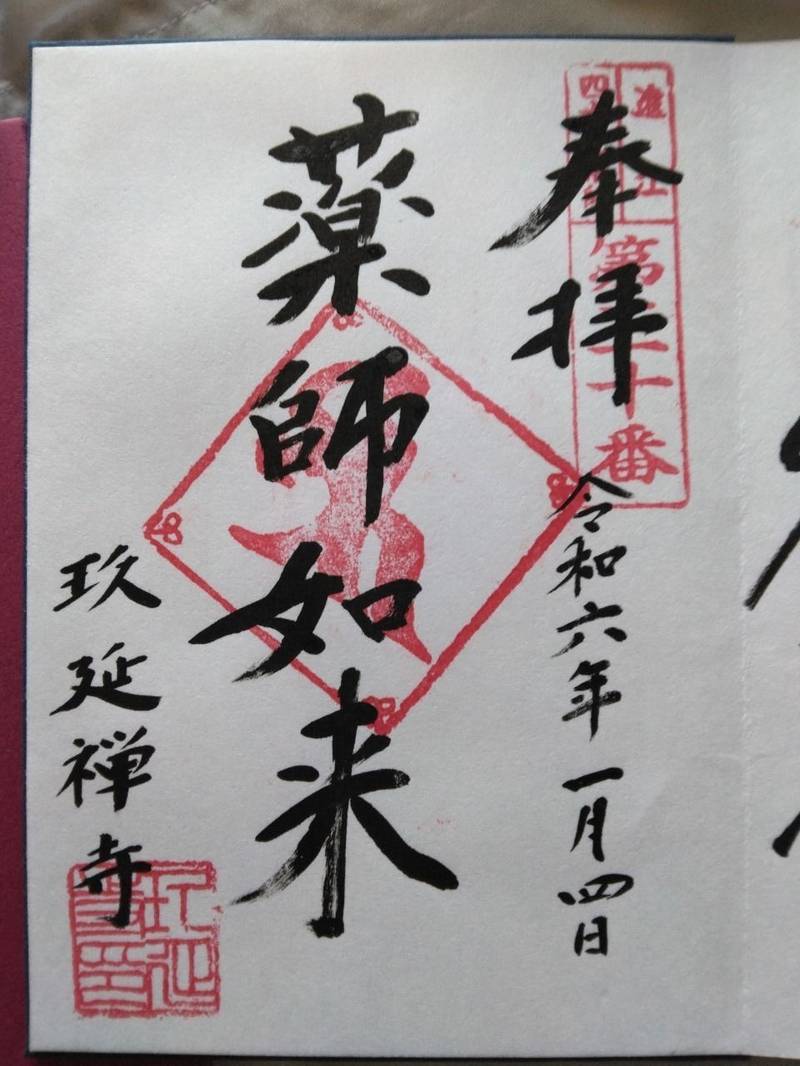 奉拝
令和六年一月四日
薬師如来
玖延禅寺
遠江
第二十番
玖延寺印